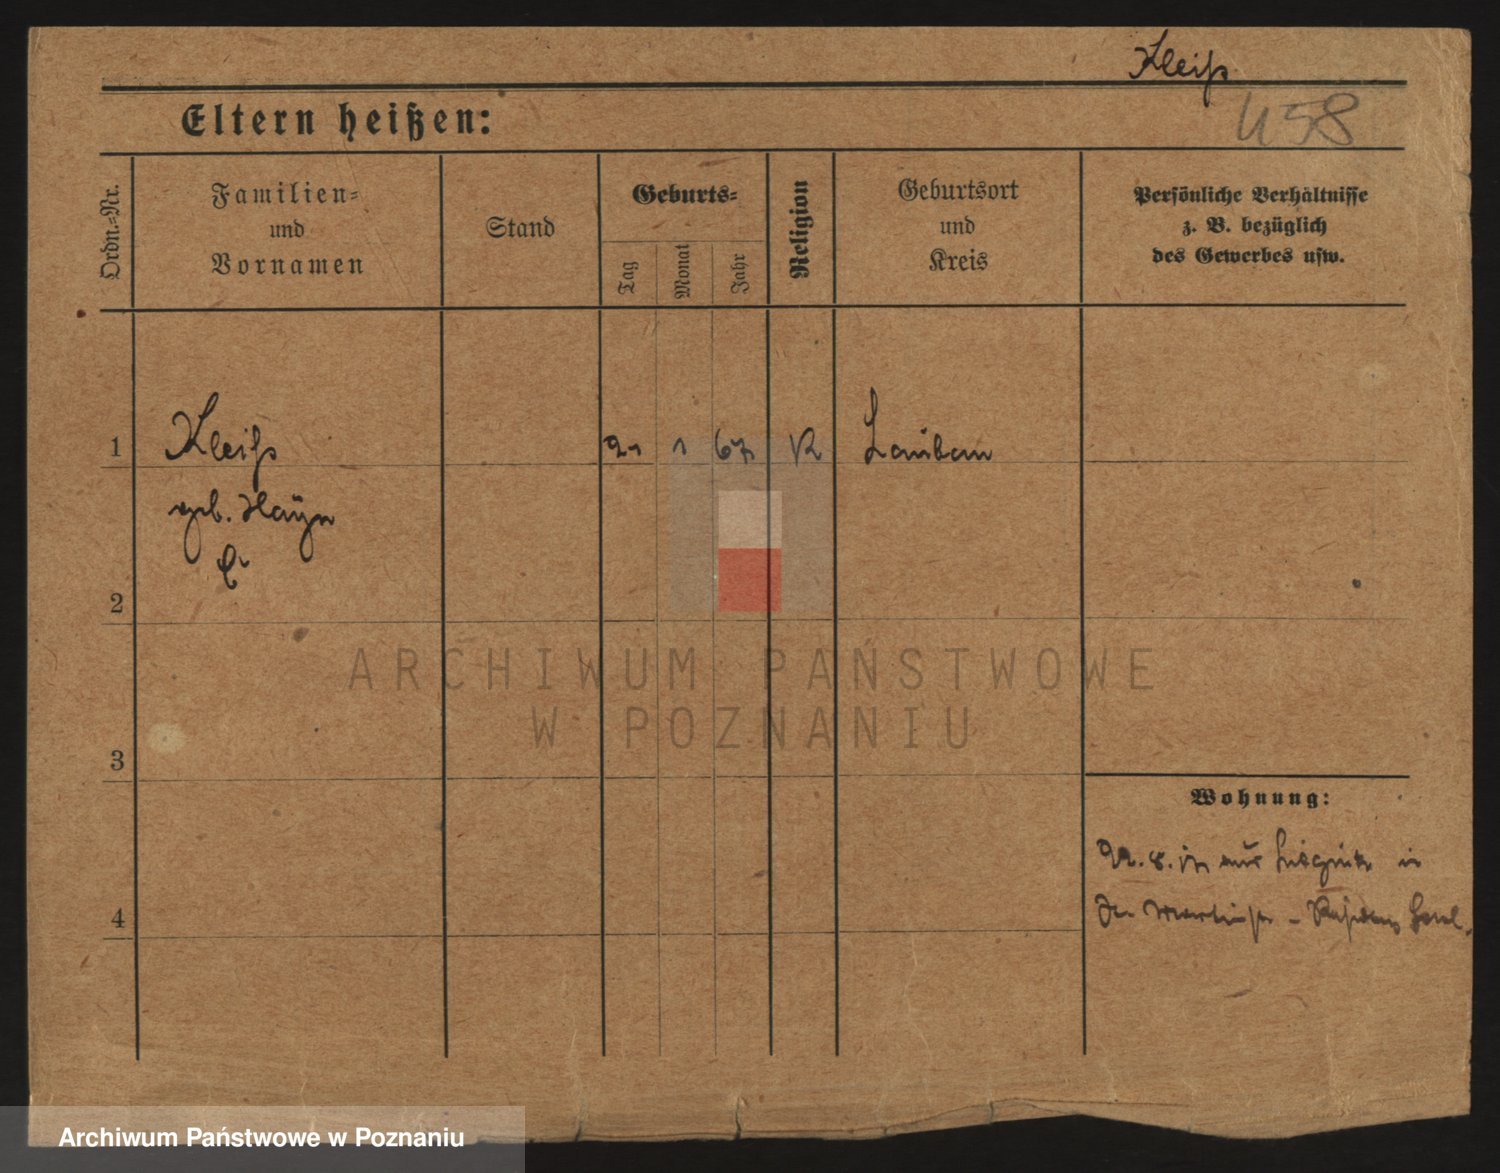 Kleiß
458
Eltern heißen:
Ordn.-Nr.
Familien-
und
Vornamen
Stand
Geburts-
Tag
Monat
Jahr
Religion
Geburtsort
und
Kreis
Persönliche Verhältnisse
z. B. bezüglich
des Gewerbes usw.
1
Kleiß
21 1 67
Lauban
geb. Hayn
2
ARCHIWUM PAŃSTWOWE
W POZNANIU
3
Wohnung:
aus Liegnitz in
4
Archiwum Państwowe w Poznaniu